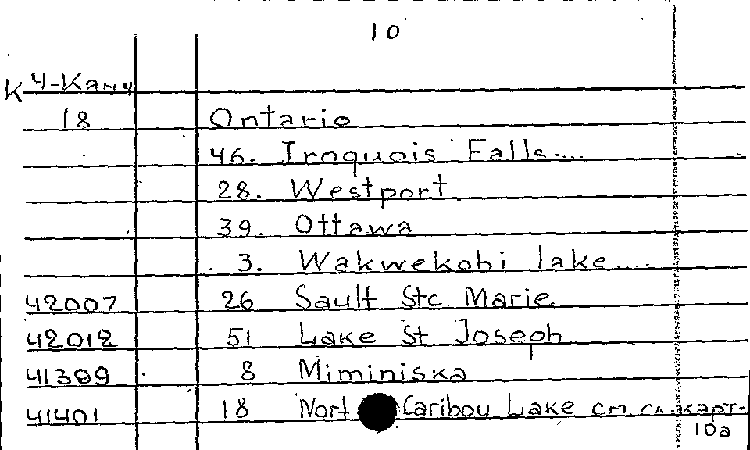 10
К Ч-Кану
18 Ontario
46. Iroquois Falls...
28. Westport
39. Ottawa
3. Wakwekobi lake....
42007 26 Sault Ste Marie
42012 51 Lake St Joseph
41399 8 Miminiska
41401 18 Nort Caribou Lake см. сл. карт.
10a